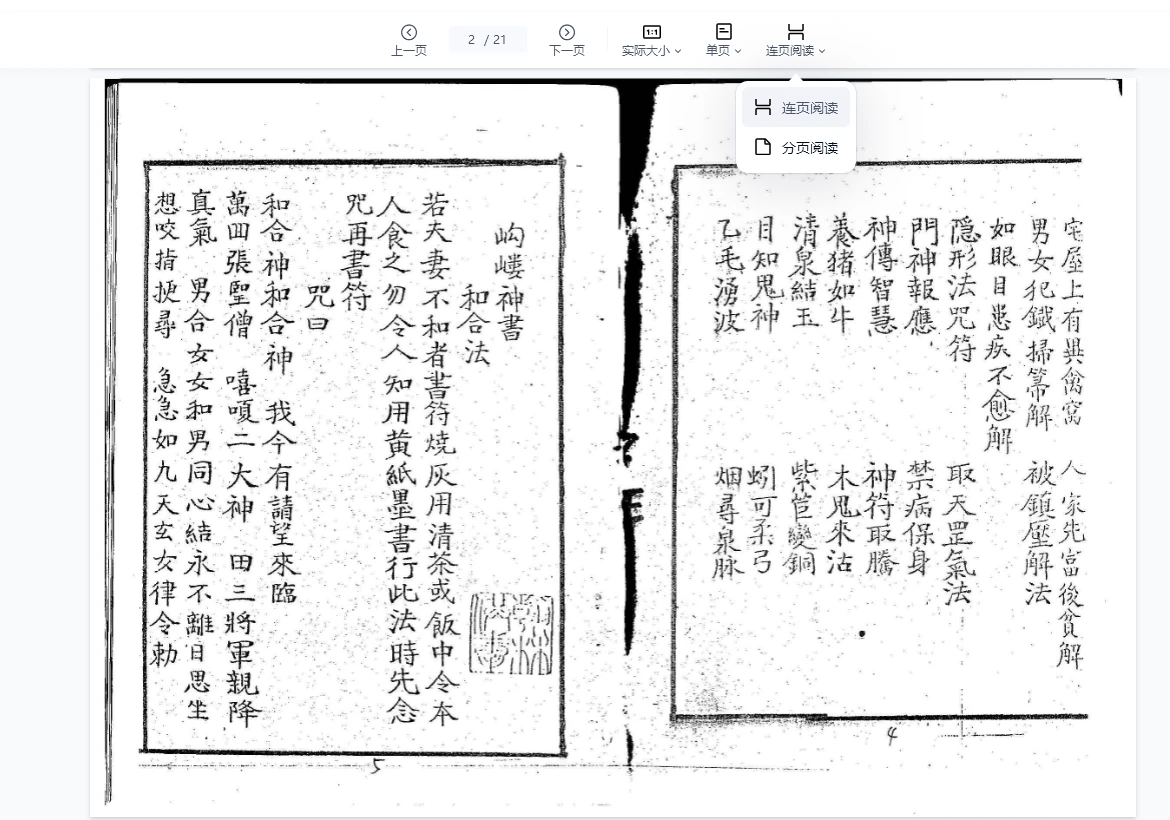 上一页
2 / 21
下一页
1:1
实际大小
单页
连页阅读
连页阅读
分页阅读
宅屋上有異禽窩 人家先富後貧解
男女犯鐡掃箒解 被鎮壓解法
如眼目患疾不愈解
隐形法咒符 取天罡氣法
門神報應 禁病保身
神傳智慧 神符取騰
養猪如牛 木鬼來沽
清泉結玉 紫苣變銅
目知鬼神 蚓可柔弓
乙毛湧波 烟尋泉脉
4
岣嶁神書
和合法
若夫妻不和者書符燒灰用清茶或飯中令本
人食之勿令人知用黄紙墨書行此法時先念
咒再書符
咒曰
和合神和合神 我今有請望來臨
萬四張聖僧 嘻嗊二大神 田三將軍親降
真氣 男合女女和男同心結永不離日思生
想咬指挭尋 急急如九天玄女律令勅
5